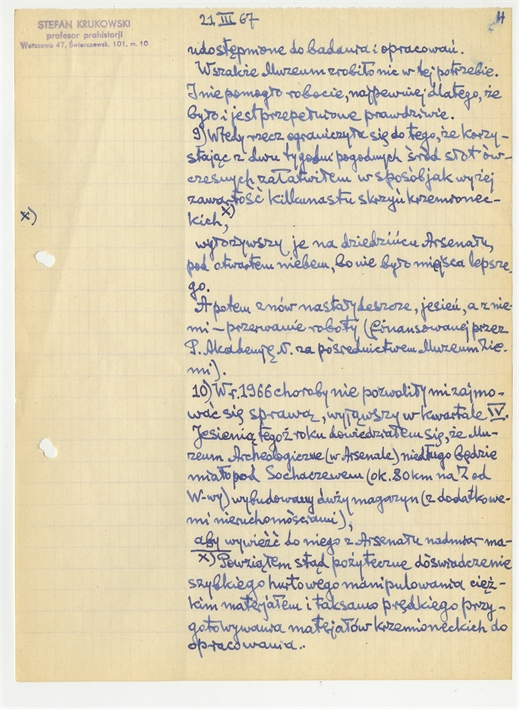 STEFAN KRUKOWSKI
profesor prehistorji
Warszawa 47, Świerczewsk. 101, m. 10
21 III 67
4
udostępnione do badania i opracowań.
Wszakże Muzeum zrobiło nie w tej potrzebie.
I nie pomogło robocie, najpewniej dlatego, że
było i jest przepełnione prawdziwie.
9) Wtedy rzecz ograniczyła się do tego, że korzy-
stając z dwu tygodni pogodnych śród słot ów-
czesnych załatwiłem w sposób jak wyżej
zawartość kilkunastu skrzyń krzemionec-
kich, x)
x)
wyłożywszy je na dziedzińcu Arsenału,
pod otwartem niebem, bo nie było miejsca lepsze-
go.
A potem znów nastały deszcze, jesień, a z nie-
mi – przerwanie roboty (finansowanej przez
P. Akademję N. za pośrednictwem Muzeum Zie-
mi).
10) W r. 1966 choroby nie pozwoliły mi zajmo-
wać się sprawą, wyjąwszy w kwartale IV.
Jesienią tegoż roku dowiedziałem się, że Mu-
zeum Archeologiczne (w Arsenale) niedługo będzie
miało pod Sochaczewem (ok. 80 km na Z od
W-wy) wybudowany duży magazyn (z dodatkowe-
mi nieruchomościami),
aby wywieźć do niego z Arsenału nadmiar ma-
x) Powziąłem stąd pożyteczne doświadczenie
szybkiego hurtowego manipulowania cięż-
kim materjałem i taksamo prędkiego przy-
gotowywania materjałów krzemioneckich do
opracowania..